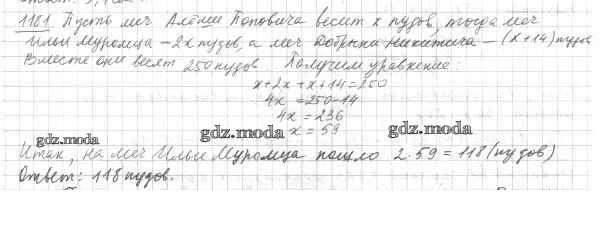 1181. Пусть меч Алёши Поповича весит x пудов, тогда меч
Ильи Муромца – 2x пудов, а меч Добрыни Никитича – (x+14) пудов
Вместе они весят 250 пудов. Получим уравнение:
x+2x+x+14=250
4x = 250-14
4x = 236
x = 59
gdz.moda
gdz.moda
gdz.moda
Итак, на меч Ильи Муромца пошло 2·59=118 (пудов)
Ответ: 118 пудов.